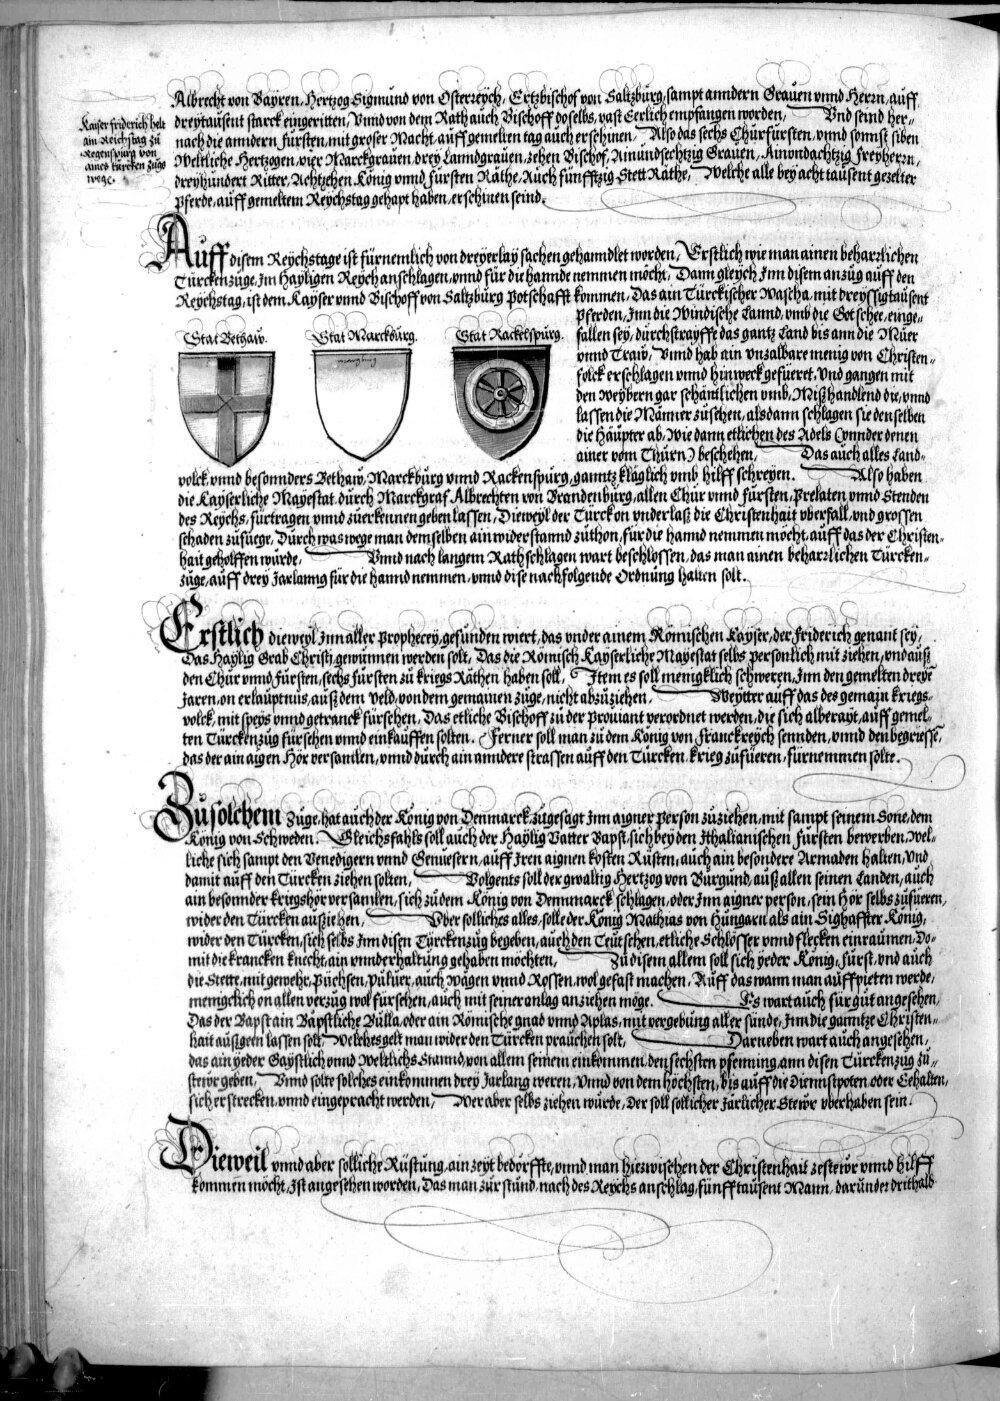 Albrecht von Bayren, Hertzog Sigmund von Österreÿch, Ertzbischof von Saltzburg, sampt anndern Grauen vnnd Herrn, auff
dreytausent starck eingeritten, Vnnd von dem Rath auch Bischoff doselbs, vast Eerlich empfangen worden, Vnd seind her-
nach die anndern fürsten, mit groser Macht, auff gemelten tag auch erschinen. Also das sechs Chürfürsten, vnnd sonnst siben
Weltliche Hertzogen, vier Marckgrauen, drey Lanndgrauen, zehen Bischof, Ainundsechtzig Grauen, Ainondachtzig freyherrn,
dreyhundert Ritter, Achtzehen König vnnd fürsten Räthe, Auch fünfftzig Stett Räthe, Welche alle bey acht tausent gezelter
Pferde, auff gemeltem Reychstag gehapt haben, erschinen seind.
Kayser friderich helt
ain Reichstag zů
Regenspurg von
aines türcken zugs
wege.
Auff disem Reychstage ist fürnemlich von dreyerlay sachen gehanndlet worden, Erstlich wie man ainen beharrlichen
Türckenzuge, Jm Hayligen Reych anschlagen, vnnd für die hannde nemmen möcht, Dann gleych Jnn disem anzug auff den
Reychstag, ist dem Kayser vnnd Bischoff von Saltzburg Potschafft kommen, Das ain Türckischer Wascha, mit dreyssigtausent
Pferden, Jnn die Windische Lannd, vmb die Gotschee, einge-
fallen sey, durchstrayffe das gantz Land bis ann die Müer
vnnd Traw, Vnnd hab ain vnzalbare menig von Christen-
folck erschlagen vnnd hinweck gefüeret, Vnd gangen mit
den Weybern gar schäntlichen vmb, Mißhandlend die, vnnd
lassen die Männer züsehen, alsdann schlagen sie denselben
die Häupter ab, Wie dann etlichen des Adels (vnnder denen
ainer vom Thurn) beschehen, Das auch alles Land-
Stat Bethaw.
Stat Marckburg.
marchug
Stat Rackelspurg.
volck, vnnd besonnders Bethaw, Marckburg vnnd Rackenspurg, ganntz kläglich vmb hilff schreyen. Also haben
die Kayserliche Mayestat, durch Marckgraf Albrechten von Brandenburg, allen Chur vnnd fürsten, Prelaten, vnnd Stenden
des Reychs, fürtragen vnnd züerkennen geben lassen, Dieweyl der Türck on vnderlaß die Christenhait vberfall, vnd grossen
schaden züfüege, Durch was wege man demselben ain widerstannd züthon, für die hannd nemmen möcht, auff das der Christen-
hait geholffen würde, Vnnd nach langem Rathschlagen wart beschlossen, das man ainen beharrlichen Türcken-
züge, auff drey Jarlanng für die hannd nemmen, vnnd dise nachfolgende Ordnung halten solt.
Erstlich dieweyl Jnn aller Prophecey, gefunden wert, das vnder ainem Römischen Kayser, der friderich genant sey,
Das Haylig Grab Christj, gewunnen werden solt, Das die Römisch Kayserliche Mayestat selbs personlich mit ziehen, vnd auß
den Chur vnnd fürsten, sechs fürsten zu kriegs Räthen haben soll, Jtem es soll menigklich schweren, Jnn den gemelten dreye
Jaren, on erlauptnus, auß dem Veld, von dem gemainen züge, nicht abzüziehen. Weytter auff das des gemain kriegs-
volck, mit speys vnnd getranck fürsehen, Das etliche Bischoff zu der Prouiant verordnet werden, die sich alberayt, auff gemel-
ten Türckenzug fürsehen vnnd einkauffen solten. Ferner soll man zu dem König von Franckreych sennden, vnnd den begriesse,
das der ain aigen Hör versamlen, vnnd durch ain anndere strassen auff den Türcken, krieg züfüeren, fürnemmen solte.
Zusolchem züge, hat auch der König von Denmarck, zügesagt Jnn aigner Person züziehen, mit sampt seinem Sone, dem
König von Schweden. Gleichsfahls soll auch der Haylig Vatter Bapst, sich bey den Jthalianischen fürsten bewerben, Wel-
liche sich sampt den Venedigern vnnd Genuesern, auff Jren aignen kosten Rüsten, auch ain besondere Armaden halten, Vnd
damit auff den Türcken ziehen solten, Volgents soll der gwaltig Hertzog von Burgund, auß allen seinen Landen, auch
ain besonnder kriegshör versamlen, sich zu dem König von Dennmarck schlagen, oder Jnn aigner person, sein Hör selbs züfüeren,
wider den Türcken außziehen, Vber solliches alles, solle der König Mathias von Hungarn als ain Sighaffter König,
wider den Türcken, sich selbs Jnn disen Türckenzüg begeben, auch den Teutschen, etliche Schlösser vnnd flecken einraumen, Do-
mit die krancken knecht, ain vnnderhaltung gehaben möchten, Zu disem allem soll sich yeder König, fürst, vnd auch
die Stette, mit gewehr, Püchsen, Puluer, auch Wägen vnnd Rossen, wol gefast machen, Auff das wann man auffpieten werde,
menigclich on allen verzug wol fürsehen, auch mit seiner anlag anziehen möge. Es wart auch für gut angesehen,
Das der Bapst ain Bäpstliche Bulla, oder ain Römische gnad vnnd Aplas, mit vergebung aller sünde, Jnn die ganntze Christen-
hait außgeen lassen solt, Welches gelt man wider den Türcken prauchen solt, Darneben wart auch angesehen,
das ain yeder Gaystlich vnnd Weltlichs Stannd, von allem seinem einkommen, den sechsten pfenning, ann disen Türckenzug zu-
stewr geben, Vnnd solte solches einkommen drey Jarlang weren, Vnnd von dem höchsten, bis auff die Diennstpoten, oder Eehalten,
sich erstrecken, vnnd eingepracht werden, Wer aber selbs ziehen würde, Der soll sollicher Järlicher Stewr vberhaben sein.
Dieweil vnnd aber solliche Rüstung, ain zeyt bedörffte, vnnd man hiezwischen der Christenhait ze stewr vnnd hilff
kommen möcht, Jst angesehen worden, Das man zur stund, nach des Reychs anschlag, fünfftausent Mann, darunder drithalb